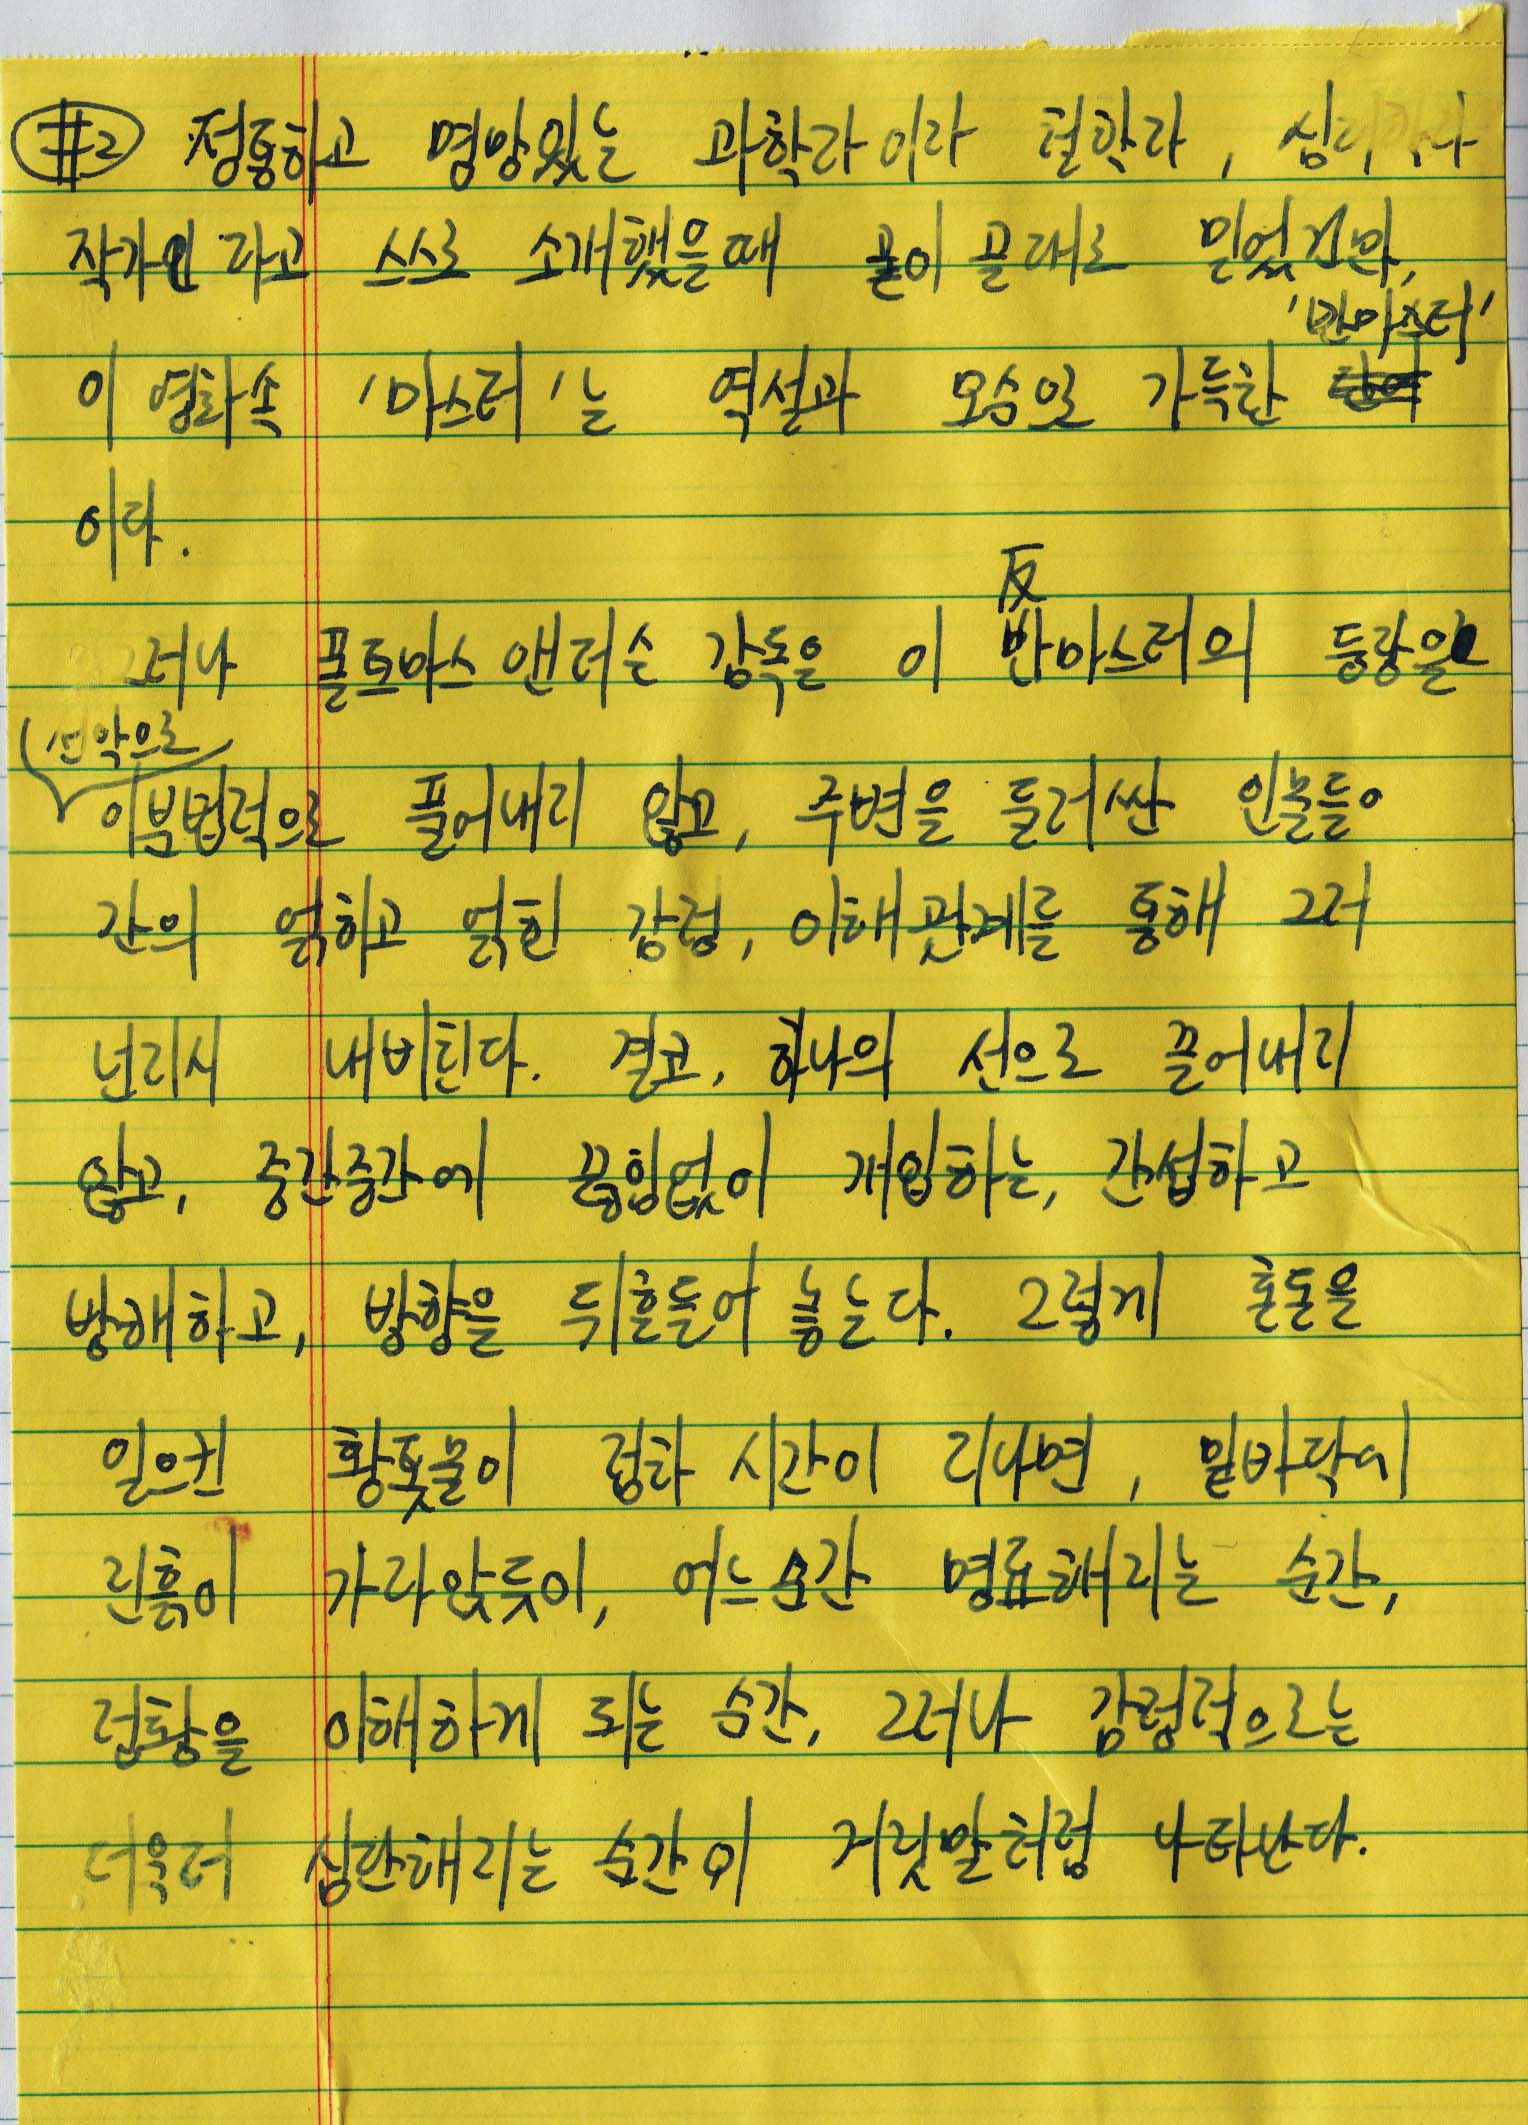 #2 정통하고 명망있는 과학자이자 철학자,
작가인 라고 스스로 소개했을때 곧이 곧대로 믿었건만,
'반마스터'
이 영화속 '마스터'는 역설과 모순으로 가득한
이다.
反
그러나 폴토마스 앤더슨 감독은 이 반마스터의 등장을
선악으로
이분법적으로 풀어내지 않고, 주변을 둘러싼 인물들
간의 얽히고 얽힌 감정, 이해관계를 통해 그저
넌지시 내비친다. 결코, 하나의 선으로 끌어내지
않고, 중간중간에 끊임없이 개입하는, 간섭하고
방해하고, 방향을 뒤흔들어 놓는다. 그렇게 혼돈을
일으킨 황톳물이 점차 시간이 지나면, 밑바닥에
진흙이 가라앉듯이, 어느순간 명료해지는 순간,
정황을 이해하게 되는 순간, 그러나 감정적으로는
더욱더 심란해지는 순간이 거짓말처럼 나타난다.